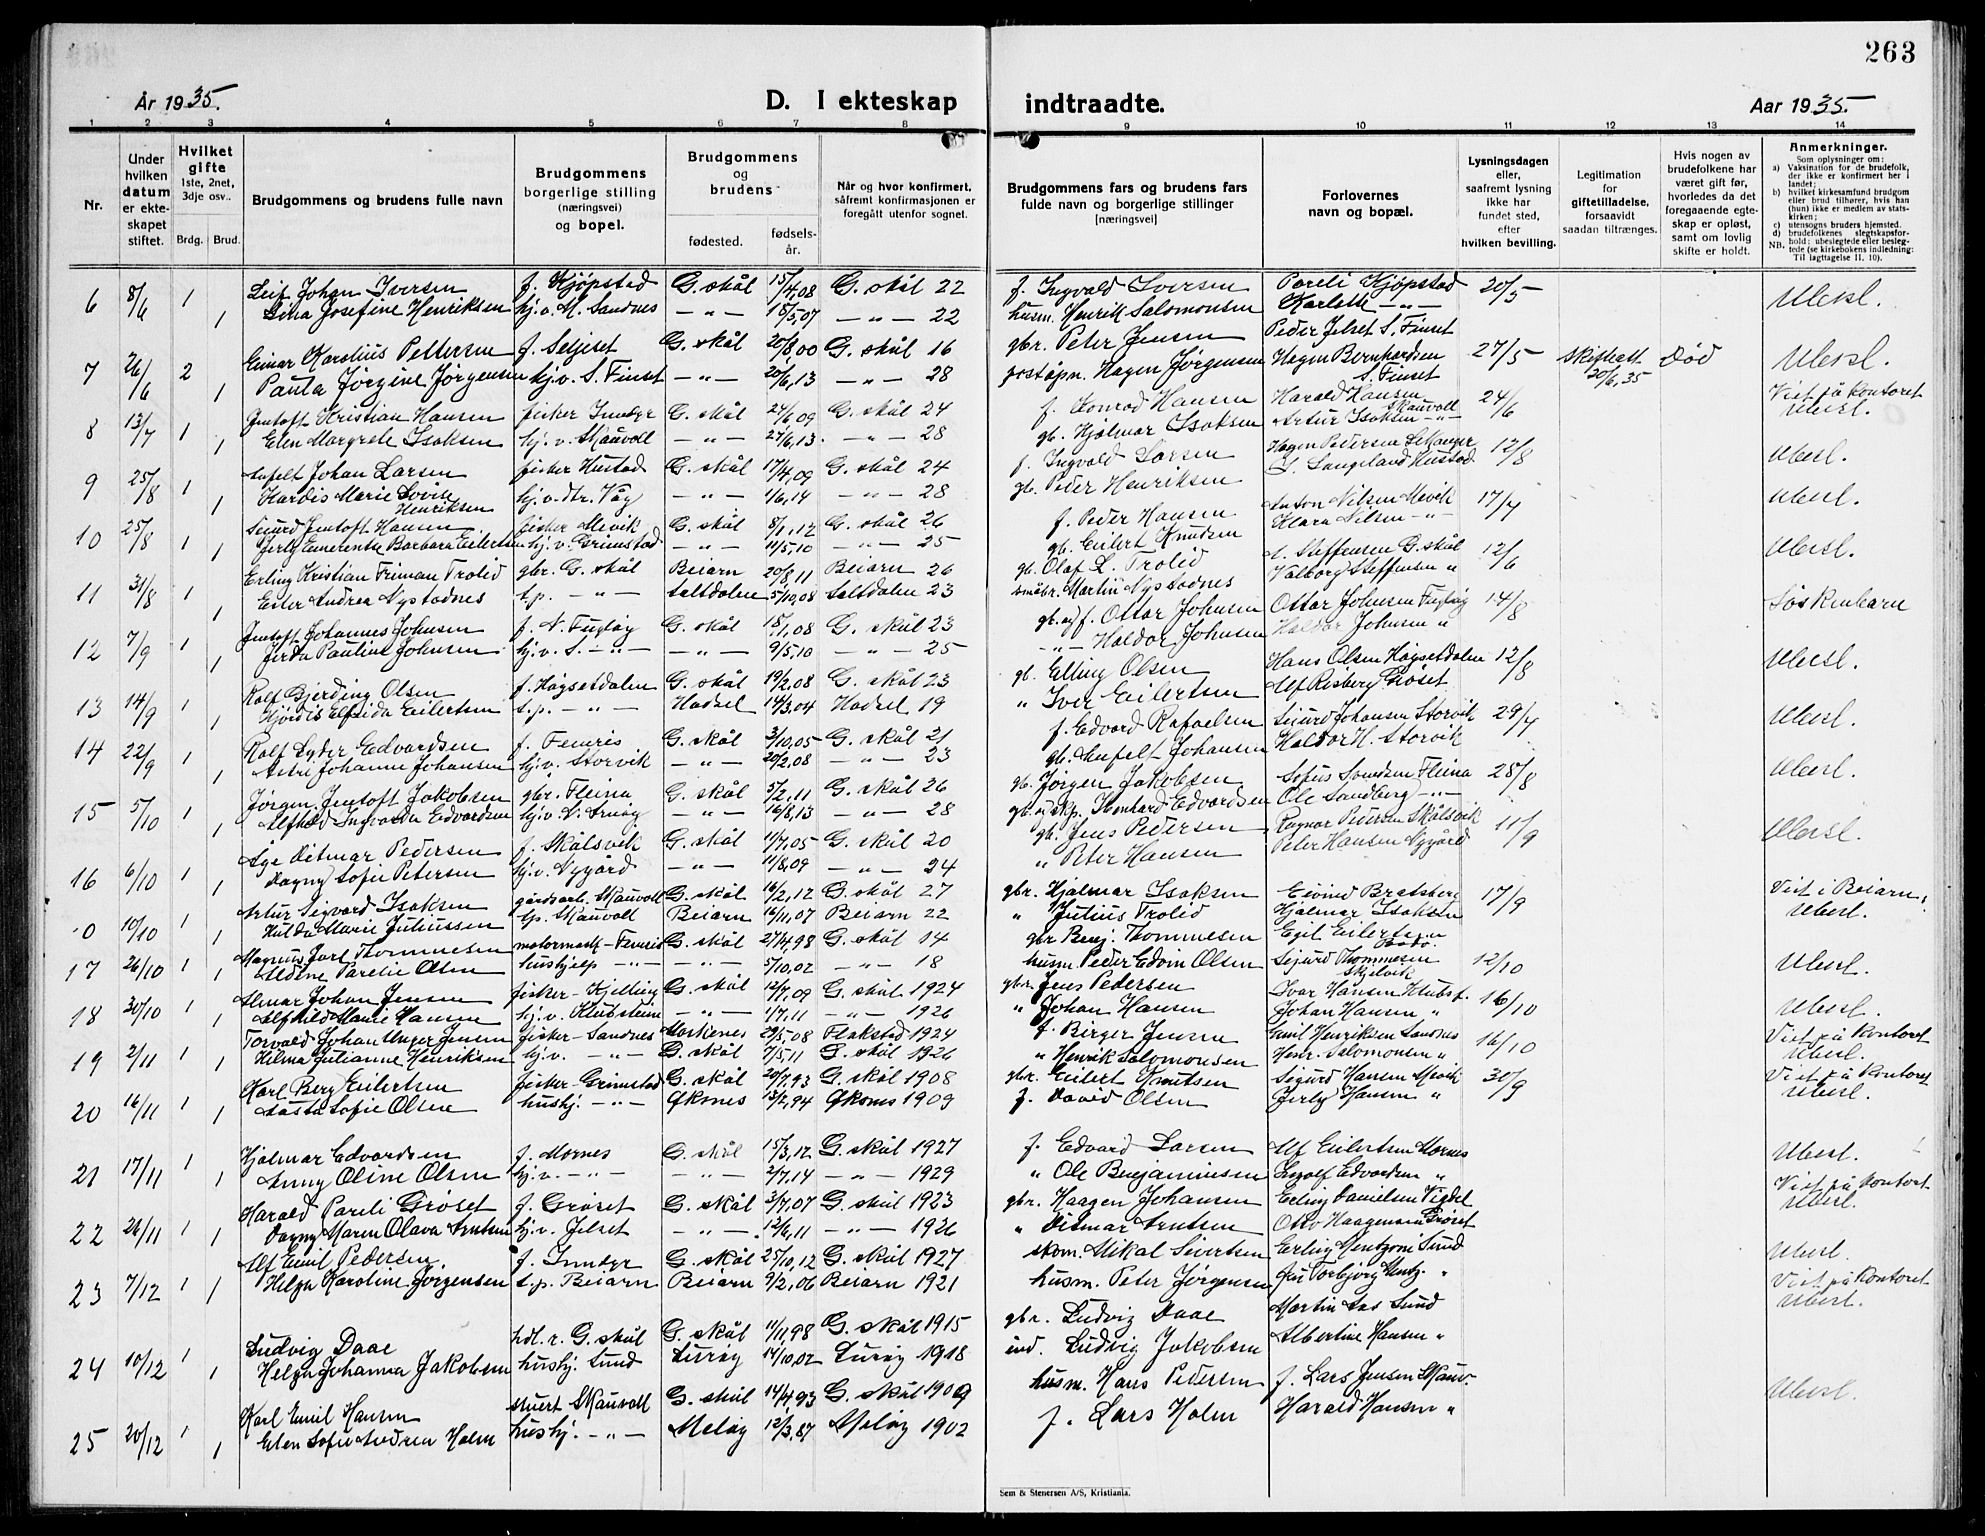 263
År 1935.
D. I ekteskap
indtraadte.
Aar 1935.
1 2 3 4 5 6 7 8 9 10 11 12 13 14
Nr.
Under hvilken datum er ekteskapet stiftet.
Hvilket gifte 1ste, 2net, 3dje osv..
Brdg. Brud.
Brudgommens og brudens fulle navn
Brudgommens borgerlige stilling (næringsvei) og bopel.
Brudgommens og brudens
fødested.
fødselsår.
Når og hvor konfirmert, såfremt konfirmasjonen er foregått utenfor sognet.
Brudgommens fars og brudens fars fulde navn og borgerlige stillinger [næringsvei]
Forlovernes navn og bopæl.
Lysningsdagen eller, saafremt lysning ikke har fundet sted, efter hvilken bevilling.
Legitimation for giftetilladelse, forsaavidt saadan tiltrænges.
Hvis nogen av brudefolkene har været gift før, hvorledes da det foregaaende egteskap er opløst, samt om lovlig skifte er holdt.
Anmerkninger.
Som oplysninger om:
a) Vaksination for de brudefolk, der ikke er konfirmert her i landet;
b) hvilket kirkesamfund brudgom eller brud tilhører, hvis han (hun) ikke er medlem av statskirken;
c) utensogns bruders hjemsted.
d) brudefolkenes slegtskapsforhold: ubeslegtede eller beslegtede (se kirkebokens indledning:
NB. Til iagttagelse 11, 10).
6 8/6 1 Leif Johan Iversen f. Kjøpstad G. skål 15/4,08 G. skål 22 f. Ingvald Iversen Pareli Kjøpstad 20/5 Ubesl.
1 Lina Josefine Henriksen hj.v. M. Sandnes — " — 15/5,07 — " — 22 husm. Henrik Salomonsen
7 26/6 2 Einar Karolius Pettersen f. Seljeset G. skål 20/8,00 G. skål 16 gbr. Peter Jensen Peder Jelset S. Finset 27/5 Død Ubesl.
1 Paula Jørgine Jørgensen hj.v. S. Finset — " — 20/6,13 — " — 28 Hagen Jørgensen Hagen Bernhardsen S. Finset 20/6,35
8 13/7 1 Jentoft Kristian Hansen fisker Inndyr G. skål 24/6,09 G. skål 24 f. Konrad Hansen Harald Hansen Skauvoll 24/6 Viet på kontoret
1 Elen Margrete Isaksen hj.v. Skauvoll — " — 27/6,13 — " — 28 gb. Hjalmar Isaksen Artur Isaksen — " — Ubesl.
9 25/8 1 Enfelt Johan Larsen fisker Hustad G. skål 17/4,09 G. skål 24 f. Ingvald Larsen Hagen Pedersen 12/8 Ubesl.
1 Hardis Marie Lovise Henriksen hj.v. Våg — " — 1/6,14 — " — 28 gb. Peder Henriksen S. Langeland Hustad
10 25/8 1 Sigurd Jentoft Hansen fisker Mevik G. skål 8/1,12 G. skål 26 f. Peder Hansen Anton Nilsen Mevik 17/7 Ubesl.
1 Jerly Emerentse Barbara Eilertsen hj.v. Grimstad — " — 11/5,10 — " — 25 gb. Eilert Knudsen Klara Nilsen — " —
11 31/8 1 Erling Kristian Friman Trolid gbr. G. skål Beiarn 20/8,11 Beiarn 26 gb. Olaf L. Trolid A. Steffensen G. skål 12/6 Ubesl.
1 Ester Andrea Nystadnes t.p. — " — Saltdalen 5/10,08 Saltdalen 23 småbr. Martin Nystadnes Valborg Steffensen "
12 7/9 1 Jentoft Johannes Johnsen f. N. Fugløy G. skål 18/1,08 G. skål 23 gb. og f. Ottar Johnsen Ottar Johnsen Fugløy 14/8 Søskenbarn
1 Jerda Pauline Johnsen hj.v. S. — " — — " — 9/5,10 — " — 25 — " — Haldor Johnsen Haldor Johnsen "
13 14/9 1 Rolf Gjerding Olsen f. Høgsetdalen G. skål 19/2,08 G. skål 23 gb. Elling Olsen Hans Olsen Høgsetdalen 12/8 Ubesl.
1 Hjørdis Elfrida Eilertsen t.p. — " — Hadsel 14/3,04 Hadsel 19 " Iver Eilertsen Alf Risberg Grøset
14 22/9 1 Rolf Lyder Edvardsen f. Femris G. skål 3/10,05 G. skål 21 f. Edvard Rafaelsen Sigurd Johansen Storvik 29/7 Ubesl.
1 Johanne Johansen hj.v. Storvik — " — 20/2,08 — " — 23 gb. Enfelt Johansen Haldor H. Storvik
15 5/10 1 Jørgen Jentoft Jakobsen gbr. Fleina G. skål 5/2,11 G. skål 26 gb. Jørgen Jakobsen Sofus Fleina 28/8 Ubesl.
1 Alfhild Ingvarda Edvardsen hj.v. N. Arnøy — " — 16/8,13 — " — 28 Edvardsen Ole Sandberg — " —
16 6/10 1 Åge Ditmar Pedersen f. Skålsvik G. skål 11/7,05 G. skål 20 gb. Jens Pedersen Ragnar Pedersen Skålsvik 11/9 Ubesl.
1 Dagny Sofie Petersen hj.v. Nygård — " — 11/8,09 — " — 24 " Peter Hansen Peter Hansen Nygård
0 10/10 1 Artur Sigvard Isaksen gårdsarb. Skauvoll G. skål 16/2,12 G. skål 27 gbr. Hjalmar Isaksen Eivind Bratsberg 17/9 Viet i Beiarn.
1 Hulda Marie Juliussen tp. Skauvoll Beiarn 16/11,07 Beiarn 22 " Julius Trolid Hjalmar Isaksen Ubesl.
17 26/10 1 Magnus Jarl Thommesen Femris G. skål 27/4,98 G. skål 14 gbr. Benj. Thommesen Egil Eilertsen Bodø. 12/10 Ubesl.
1 Aldine Parelie Olsen hushjelp — " — — " — 5/10,02 — " — 18 husm. Peder Edvin Olsen Sigurd Thommesen Skjelvik
18 30/10 1 Almar Johan Jensen fisker - Kjelling G. skål 12/7,09 G. skål 1924 gbr. Jens Pedersen Ivar Hansen Klubst. 16/10 Ubesl.
1 Alfhild Marie Hansen hj.v. Klubstein — " — 1/7,11 — " — 1926 " Johan Hansen Johan Hansen "
19 2/11 1 Torvald Johan Unger Jensen fisker - Sandnes 29/5,08 Flakstad 1924 f. Birger Jensen Emil Henriksen Sandnes 16/10 Viet på kontoret
1 Hilma Julianne Henriksen hj.v. — " — G. skål 7/5,11 G. skål 1926 " Henrik Salomonsen Henr. Salomonsen " Ubesl.
20 16/11 1 Karl Berg Eilertsen fisker - Grimstad G. skål 20/7,93 G. skål 1908 gbr. Eilert Knutsen Sigurd Hansen Mevik 30/9 Viet på kontoret
1 Sofie Olsen hushj. — " — Øksnes 13/2,94 Øksnes 1909 f. David Olsen Jerly Hansen " Ubesl.
21 17/11 1 Hjalmar Edvardsen f. Mornes G. skål 15/3,12 G. skål 1927 f. Edvard Larsen Alf Eilertsen Mornes Ubesl.
1 Anny Oline Olsen hj.v. — " — — " — 2/7,14 — " — 1929 " Ole Benjaminsen Ingolf Edvardsen "
22 26/11 1 Harald Pareli Grøset f. Grøset G. skål 3/7,07 G. skål 1923 gbr. Haagen Johansen Erling Danielsen Vigdel Viet på kontoret
1 Dagny Maren Olava Arntsen hj.v. Jelset — " — 12/6,11 — " — 1926 " Ditmar Arntsen Otto Haagensen Grøset Ubesl.
23 7/12 1 Alf Emil Pedersen. f. Inndyr G. skål 25/10,12 G. skål 1927 skom. Mikal Sivertsen Erling Mentzoni Sund Ubesl.
1 Helga Karoline Jørgensen t.p. Beiarn Beiarn 9/2,06 Beiarn 1921 husm. Peter Jørgensen Torbjørg Mentz. " Viet på kontoret Ubesl.
24 10/12 1 Ludvig Daae G. skål G. skål 11/11,98 G. skål 1915 gbr. Ludvig Daae Martin Sund
1 Helga Johanna Jakobsen hushj. Sund Lurøy 14/10,02 Lurøy 1918 ind. Ludvig Jakobsen Albertine Hansen "
25 20/12 1 Karl Emil Hansen stuert Skauvoll G. skål 14/4,93 G. skål 1909 husm. Hans Pedersen f. Lars Jensen Skauv. Ubesl.
1 Elen Sofie Andrea Holm hushj. — " — Meløy 12/3,87 Meløy 1902 f. Lars Holm Harald Hansen "
Sem & Stenersen A/S, Kristiania.